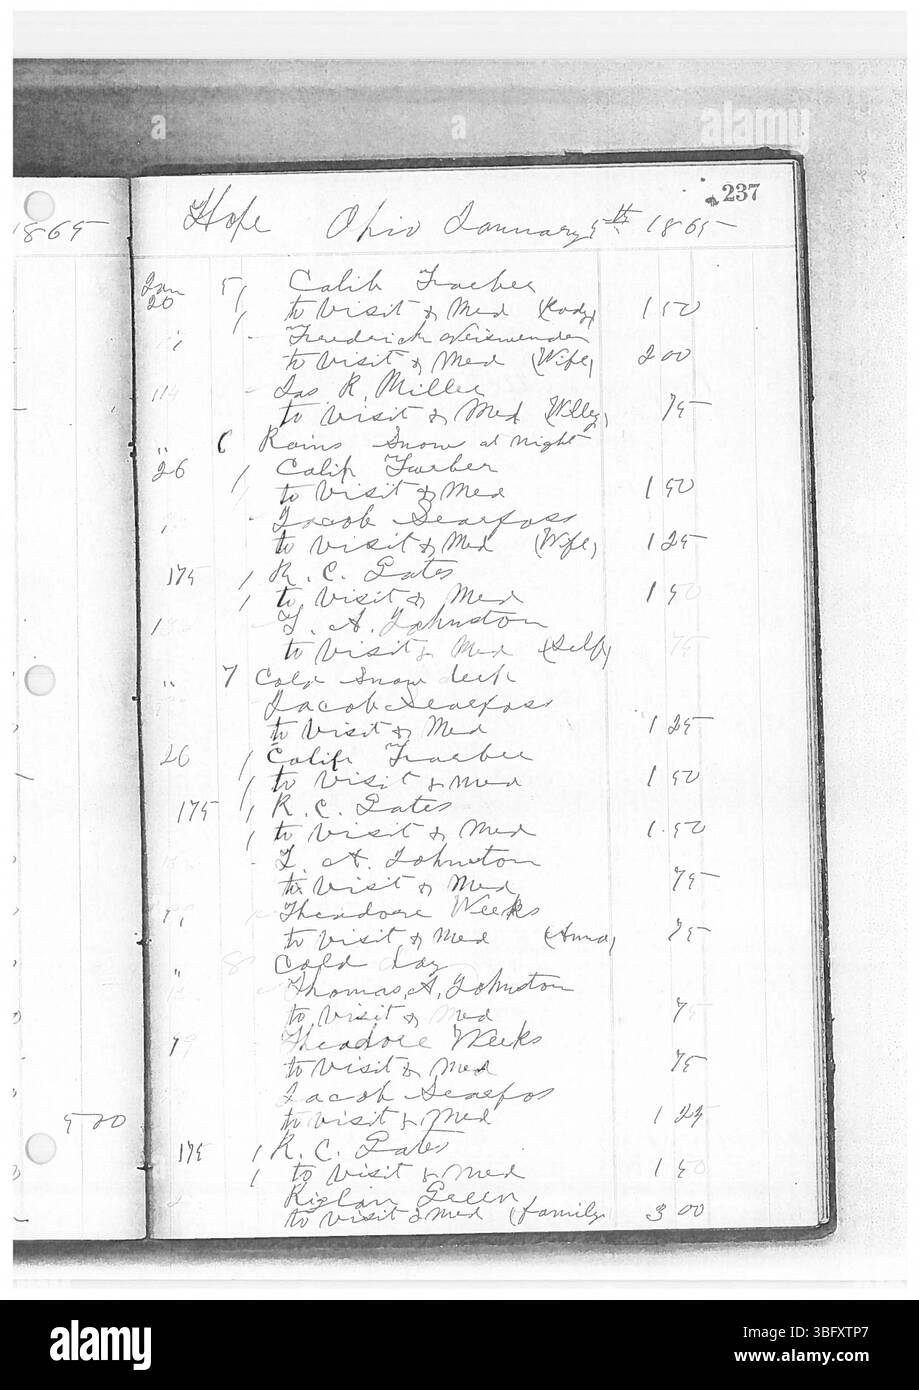 1865
237
Hope Ohio January 5th 1865
Jan 5
20 Calib Traeber
to Visit & Med 1 50
Frederick
to Visit & Med (Wife) 2 00
114 Jas R. Miller
to Visit & Med (Willey) 75
" 6 Rains Snow at night
26 Calip Traeber
to Visit & Med 1 50
Jacob Searfoss
to Visit & Med (Wife) 1 25
175 R. C. Gates
to Visit & Med 1 50
T. A. Johnston
to Visit & Med (Self) 75
" 7 Cold Snow deep
Jacob Searfoss
to Visit & Med 1 25
26 Calip Traeber
to Visit & Med 1 50
175 R. C. Gates
to Visit & Med 1.50
T. A. Johnston
to Visit & Med 75
Theadore Weeks
to Visit & Med (Anna) 75
" 8 Cold day
Thomas A. Johnston
to Visit & Med 75
Theadore Weeks
to Visit & Med 75
Jacob Searfos
to Visit & Med 1 25
175 R. C. Gates
to Visit & Med 1 50
Green
to Visit & Med (family) 3 00
5 00
a a alamy
alamy
Image ID: 3BFXTP7
www.alamy.com